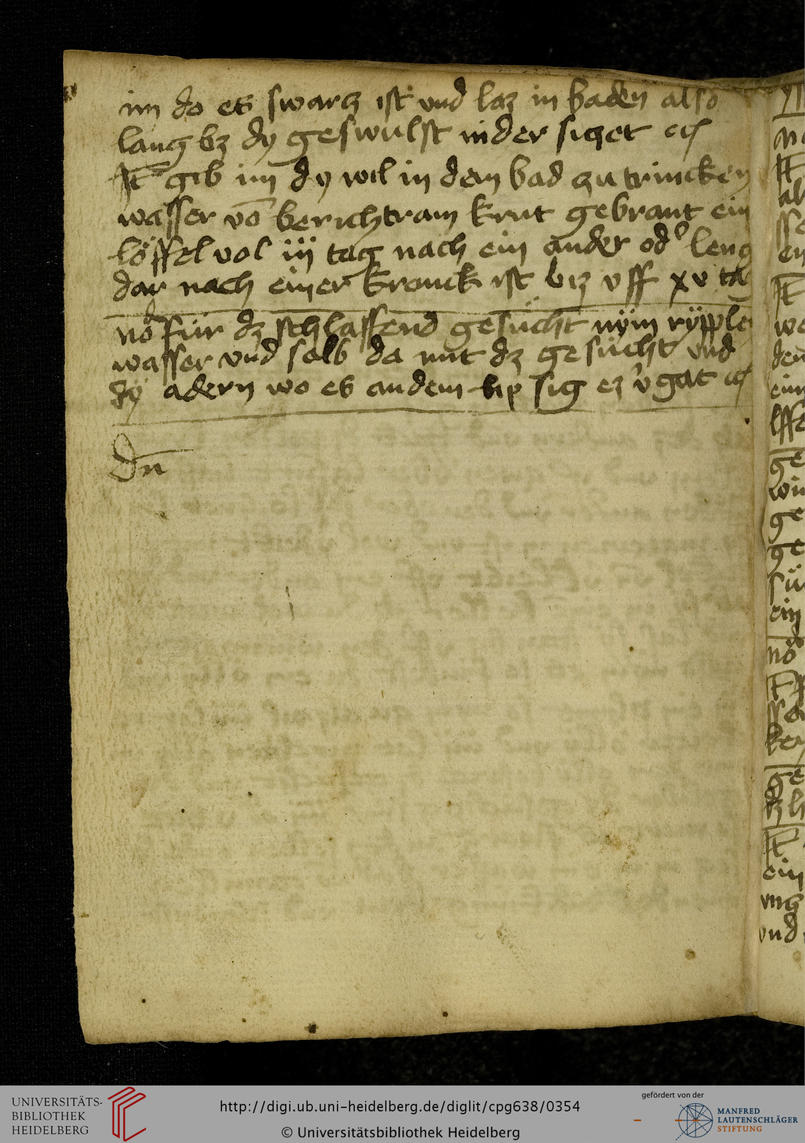 im do es swarcz ist und laz in baden also
lang bz dy geswulst nider siget etc
It gib im dy wil in dem bad zu trincken
wasser vō berichtram krut gebrant ein
löffel vol iij tag nach ein ander od leng
dar nach einer kranck ist biz uff xv ta
für dz schlaffend gesücht nym
wasser und salb da mit dz gesücht und
dy adern wo es an dem lip sig ez v̓gat etc
Dn
UNIVERSITÄTS-
BIBLIOTHEK
HEIDELBERG
http://digi.ub.uni-heidelberg.de/diglit/cpg638/0354
© Universitätsbibliothek Heidelberg
gefördert von der
MANFRED
LAUTENSCHLÄGER
STIFTUNG